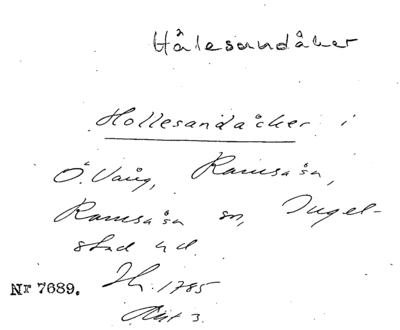 Hålesandåker
Hollesandåcker i
Ö. Vång, Ramsåsa,
Ramsåsa sn, Ingel-
stad hd.
Nr 7689. 1785
Akt 3.